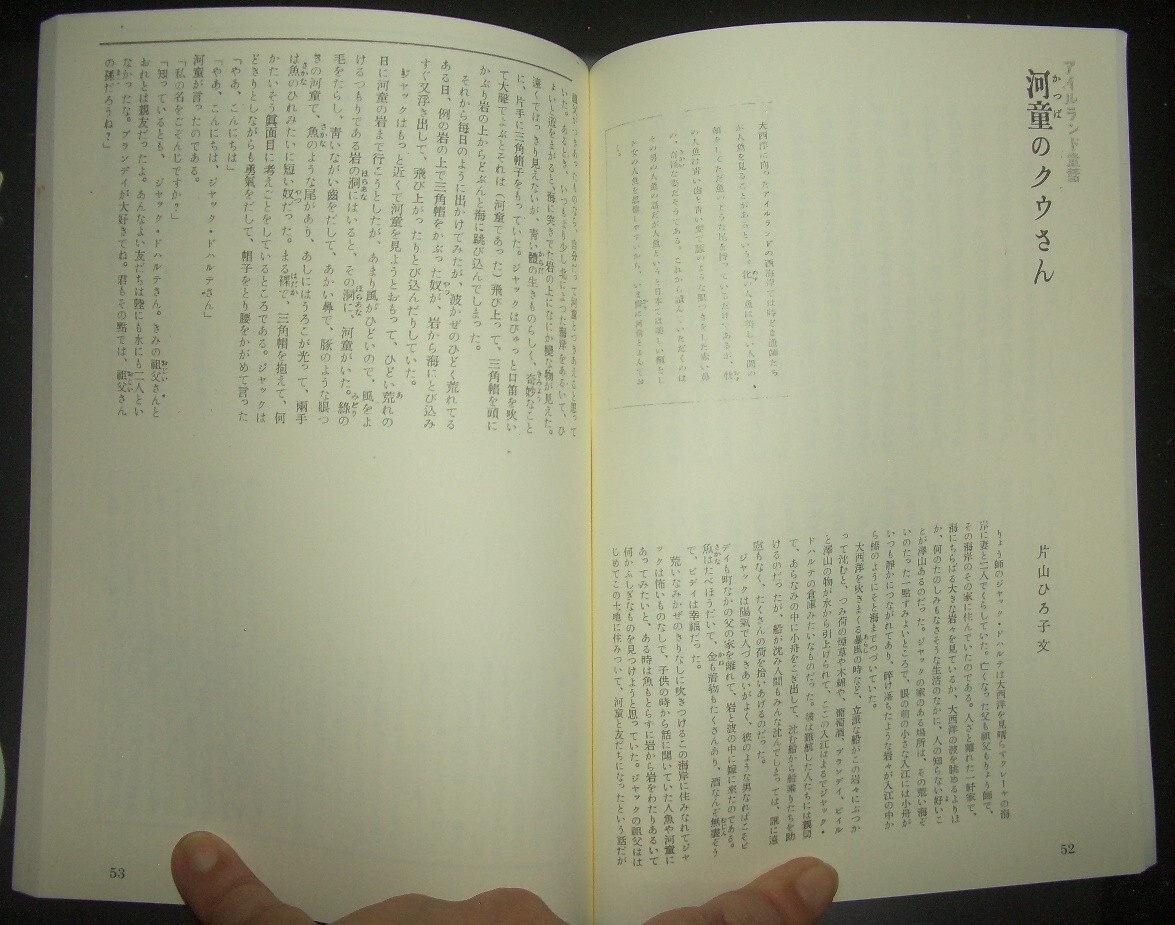 アイルランド童話
河童のクウさん
片山ひろ子文
大西洋に向ったアイルランドの西海岸では時どき漁師たち
が人魚を見ることがあるという。女の人魚は美しい人間の
顔をしてただ魚のような尾を持っているだけであるが、牡
の人魚は青い歯と青い髪で豚のような眼つきをした赤い鼻
の、奇怪な姿だそうである。これから読んでいただくのは
その男の人魚の話だが人魚というと日本では美しい顔をし
た女の人魚を想像しやすいから、いま仮に河童とよんでお
く。
りょう師のジャック・ドハルテは大西洋を見晴らすクレーヤの海
岸に妻と二人でくらしていた。亡くなった父も祖父もりょう師で、
その海岸のその家に住んでいたのである。人さと離れた一軒家で、
海にちらばる大きな岩々を見ているか、大西洋の波を眺めるよりほ
か、何のたのしみもなさそうな生活のなかに、人の知らない好いこ
とが澤山あるのだった。ジャックの家のある場所は、その荒い海ぞ
いのたった一つ住みよいところで、眼の前の小さな入江には小舟が
いつも靜かにつながれてあり、砕け落ちたような岩々が入江の中か
らのようにそと海までつづいていた。
大西洋を吹きまくる暴風の時など、立派な船がこの岩々にぶつか
って沈むと、つみ荷の煙草や木綿や、葡萄酒、ブランデイ、ビイル
と澤山の物が水から引上げられて、ここの入江はまるでジャック・
ドハルテの倉庫みたいなものだった。彼は難船した人たちには親切
で、あらなみの中に小舟をこぎ出して、沈む船から船乗りたちを助
けるのだったが、船が沈み人間もみんな沈んでしまっては、誰に遠
慮もなく、たくさんの荷を拾いあげるのだった。
ジャックは陽氣で人づきあいがよく、彼のような男なればこそビ
デイも町なかの父の家を離れて、岩と波の中に嫁に來たのである。
魚はたべほうだいで、金も着物もたくさんあり、酒なんぞ無盡ぞう
で、ビデイは幸福だった。
荒いなみかぜのきりなしに吹きつけるこの海岸に住みなれてジャ
ックは怖いものなしで、子供の時から話に聞いていた人魚や河童に
あってみたいと、ある時は魚もとらずに岩から岩をわたりあるいて
何かふしぎなものを見つけようと思っていた。ジャックの祖父はは
じめてこの土地に住みついて、河童と友だちになったという話だが
52
祖父がつきあったものなら、自分だって河童とつきあえると思って
いた。あるとき、いつもより少し北によった海岸をあるいて、ひ
ょいと道をまがると、海に突きでた岩の上になにか變な物が見えた。
遠くてはっきり見えないが、青い體の生きものらしく、奇妙なこと
に、片手に三角帽子をもっていた。ジャックはぴゅっと口笛を吹い
て大聲でよぶとそれは(河童であった)飛び上って、三角帽を頭に
かぶり岩の上からどぶんと海に跳び込んでしまった。
それから毎日のように出かけてみたが、波かぜのひどく荒れてる
ある日、例の岩の上で三角帽をかぶった奴が、岩から海にとび込み
すぐ又浮き出して、飛び上がったりとび込んだりしていた。
ジャックはもっと近くで河童を見ようとおもって、ひどい荒れの
日に河童の岩まで行こうとしたが、あまり風がひどいので、風をよ
けるつもりである岩の洞にはいると、その洞に、河童がいた。綠の
毛をたらし、青いながい歯をだして、あかい鼻で、豚のような眼つ
きの河童で、魚のような尾があり、あしにはうろこが光って、兩手
は魚のひれみたいに短い奴だった。まる裸で、三角帽を抱えて、何
かたいそう眞面目に考えごとをしているところである。ジャックは
どきりとしながらも勇氣をだして、帽子をとり腰をかがめて言った
「やあ、こんにちは」
「やあ、こんにちは、ジャック・ドハルテさん」
河童が言ったのである。
「私の名をごぞんじですか?」
「知っているとも、ジャック・ドハルテさん。きみの祖父さんと
おれとは親友だったよ。あんなよい友だちは陸にも水にも二人とい
なかったな。ブランデイが大好きでね。君もその點では、祖父さん
の孫だろうね?」
53